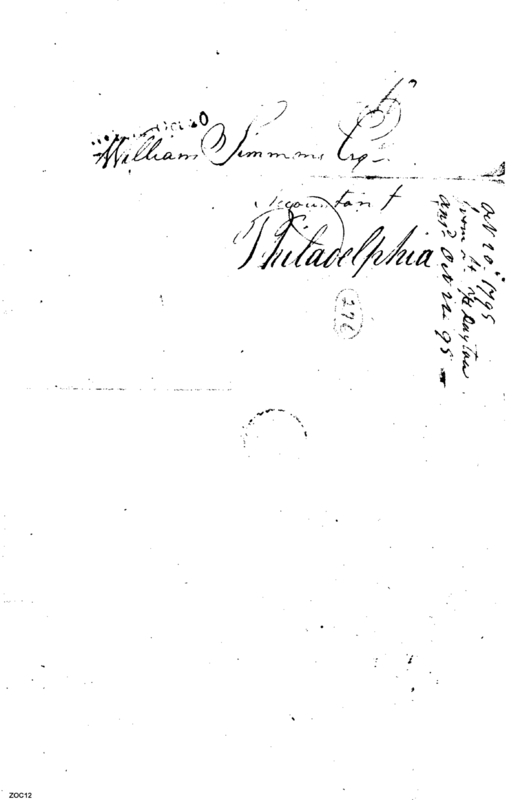 William Simmons Esq
Accountant
Philadelphia
276
Oct 20. 1795
from
Dayton
ansd. Oct 95
ZOC12